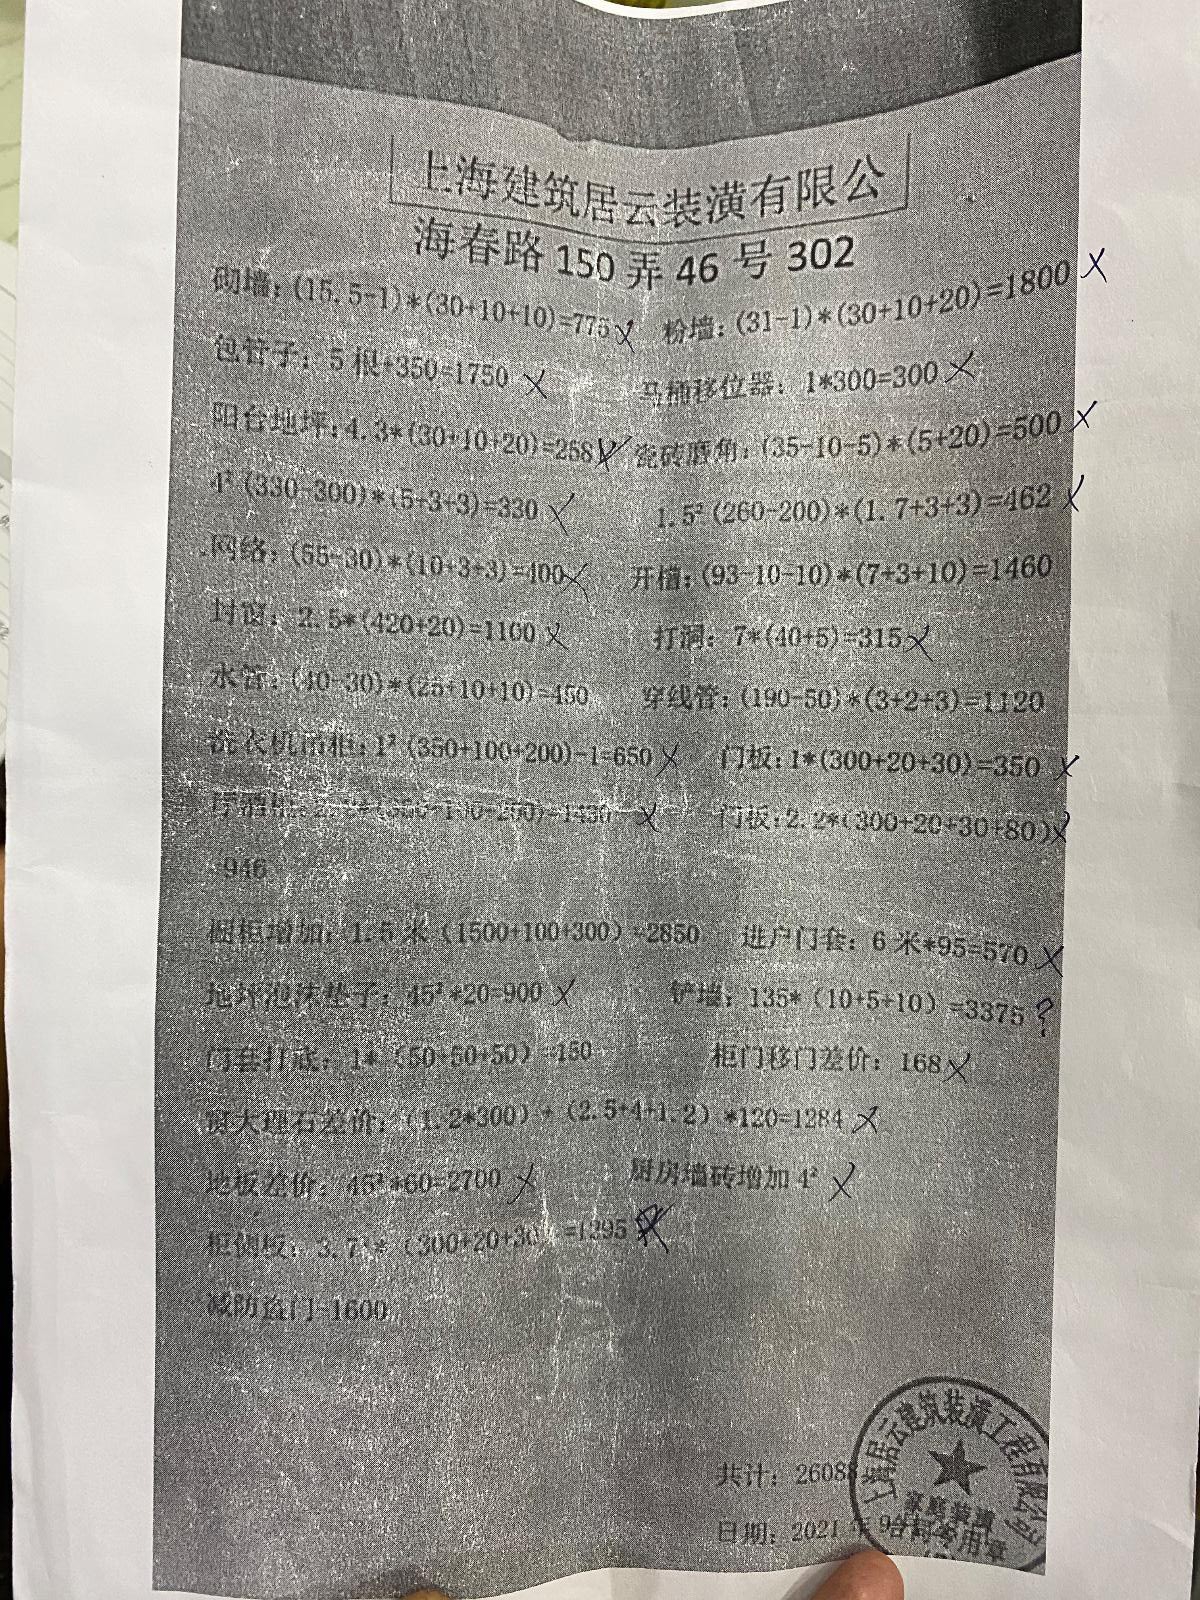 上海建筑居云装潢有限公
海春路 150 弄 46 号 302
砌墙：(15.5-1)*(30+10+10)=775 X 粉墙：(31-1)*(30+10+20)=1800 X
包管子：5 根*350=1750 X 马桶移位器：1*300=300 X
阳台地坪：4.3*(30+10+20)=258 X 瓷砖磨角：(35-10-5)*(5+20)=500 X
4² (330-300)*(5+3+3)=330 X 1.5² (260-200)*(1.7+3+3)=462 X
网络：(55-30)*(10+3+3)=400 X 开槽：(93-10-10)*(7+3+10)=1460
封窗：2.5*(420+20)=1100 X 打洞：7*(40+5)=315 X
水管：(40-30)*(25+10+10)=450 穿线管：(190-50)*(3+2+3)=1120
洗衣机吊柜：1² (350+100+200)-1=650 X 门板：1*(300+20+30)=350 X
X 门板：2.2*(300+20+30+80) X
=946
橱柜增加：1.5 米（1500+100+300）=2850 进户门套：6 米*95=570 X
地坪泡沫垫子：45²*20=900 X 铲墙：135*（10+5+10）=3375 ?
门套打底：1*（50+50+50）=150 柜门移门差价：168 X
厨大理石差价：（1.2*300）+（2.5+4+1.2）*120=1284 X
地板差价：45²*60=2700 X 厨房墙砖增加 4² X
柜侧板：3.7²*（300+20+30 =1295 X
减防盗门-1600
共计：2608
日期：2021 年 9
上海居云建筑装潢工程有限公司
家庭装潢
合同专用章